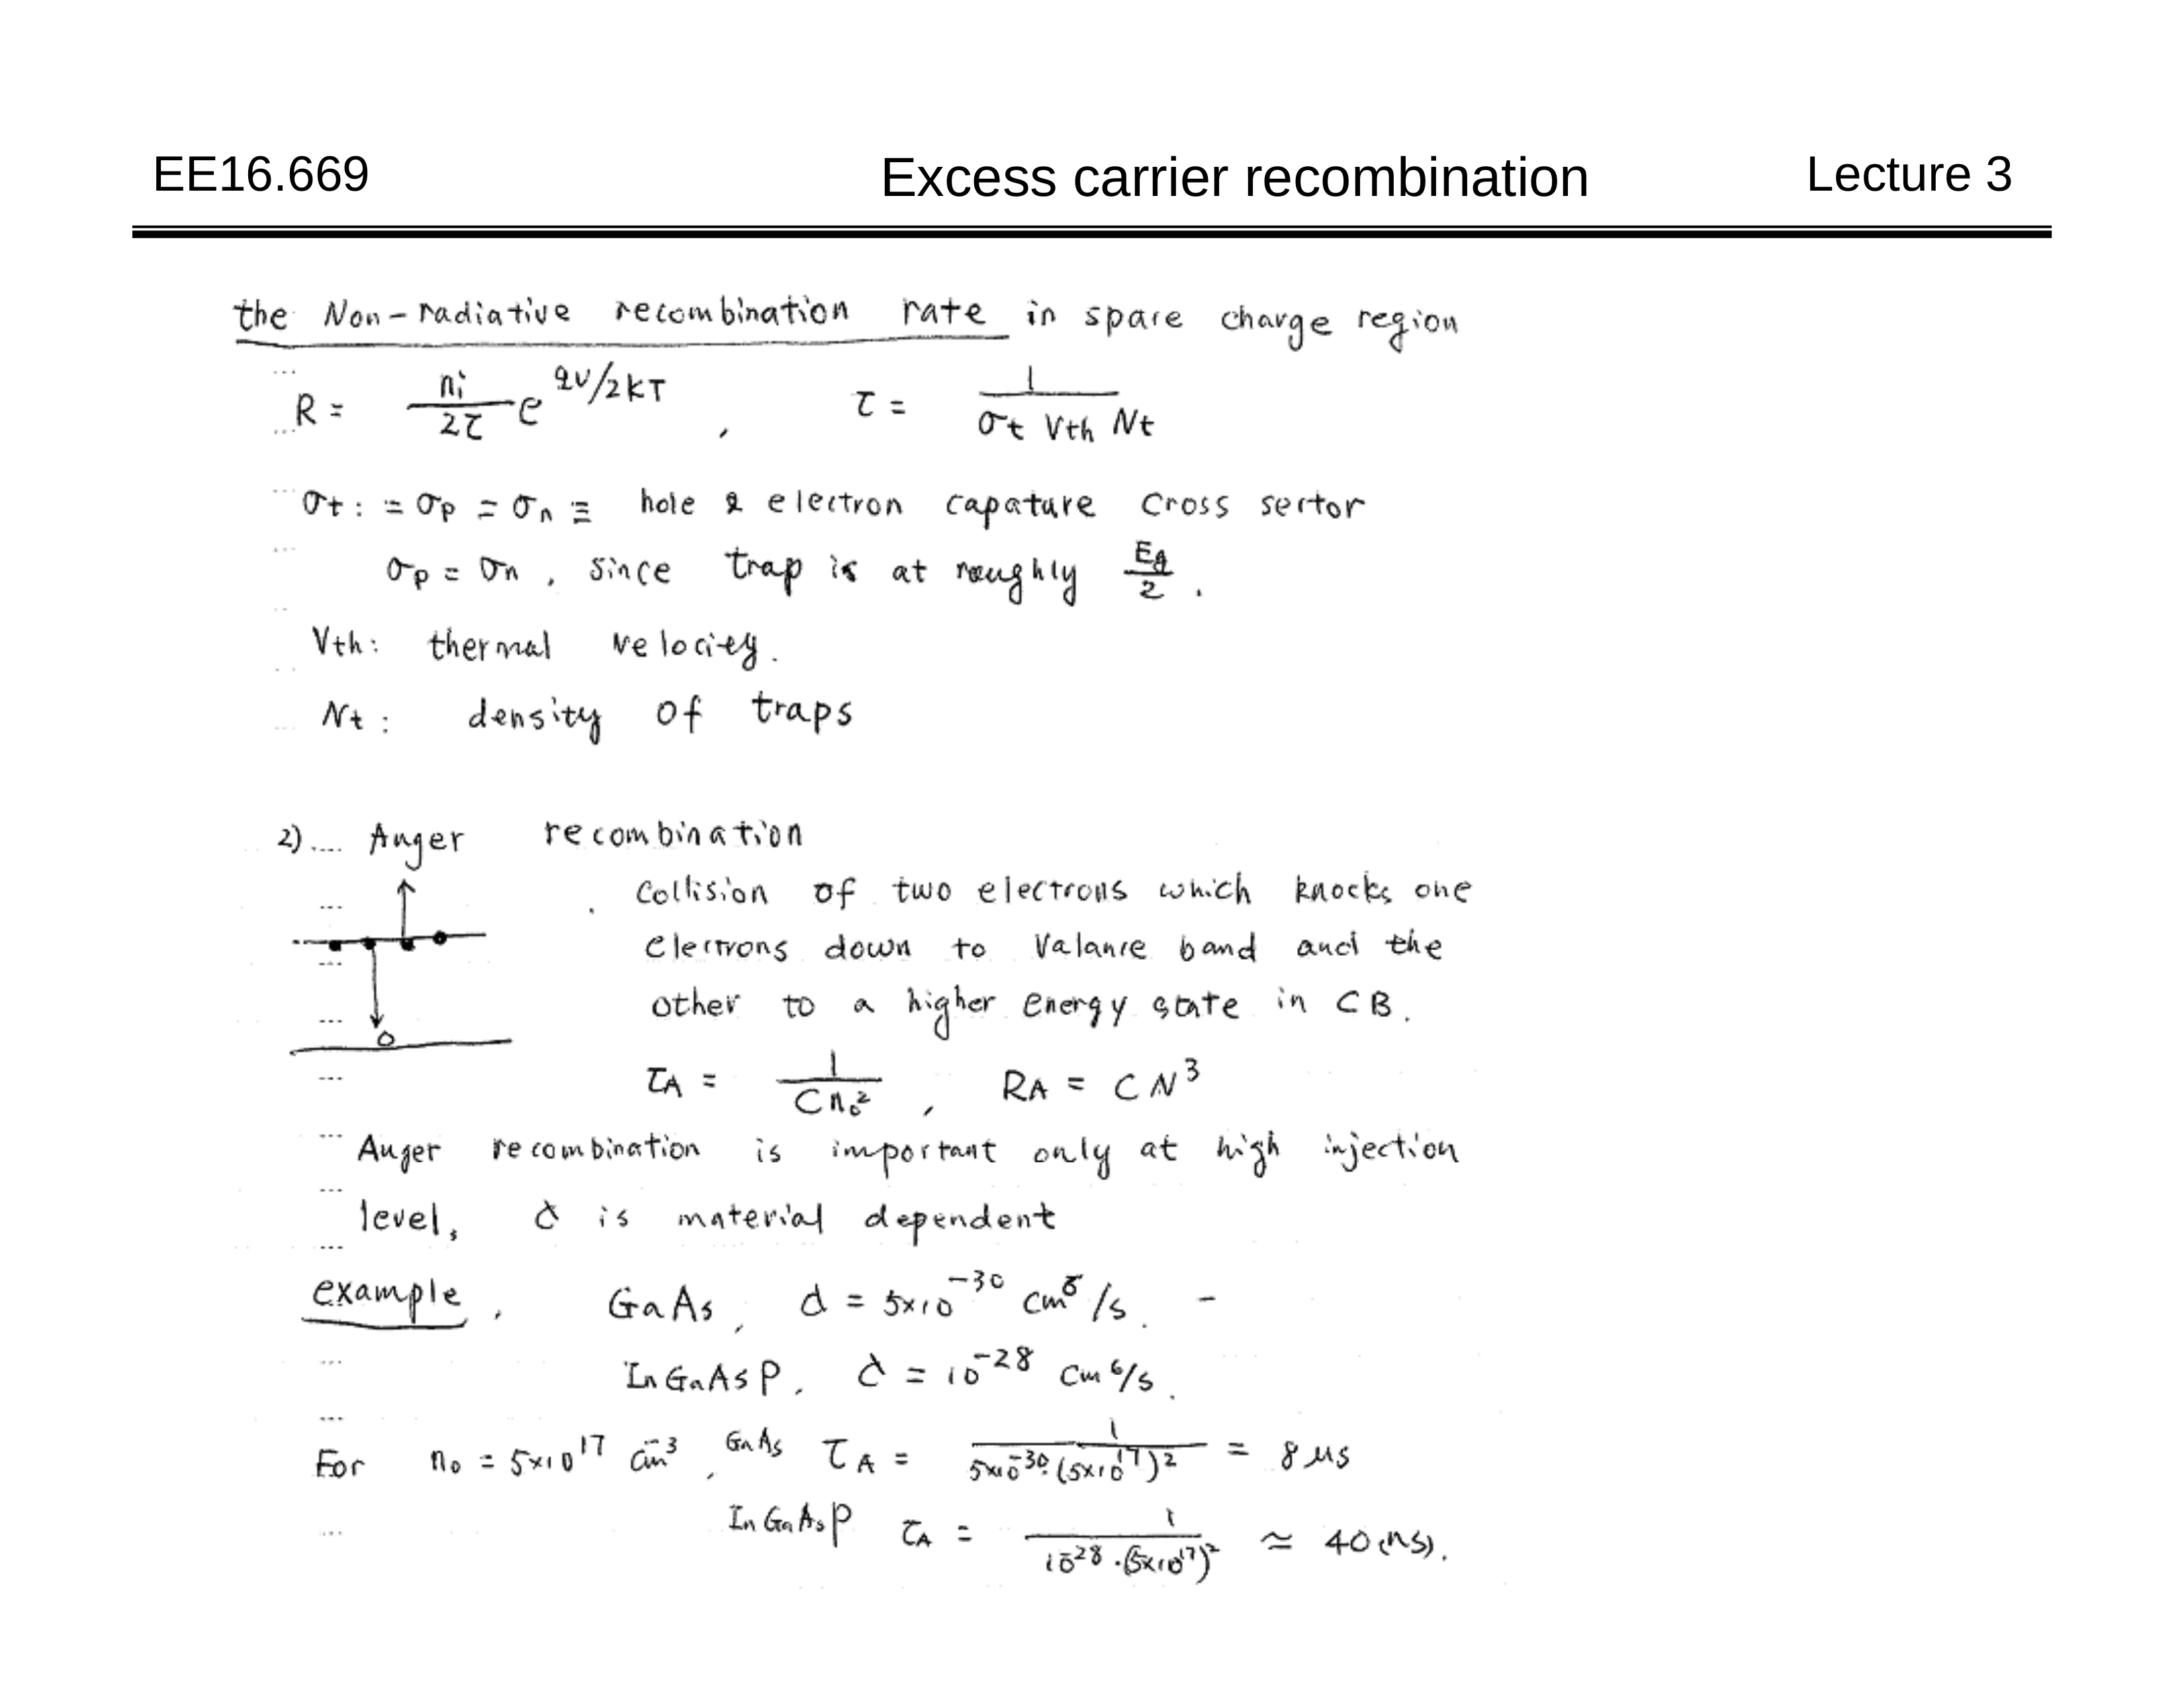 EE16.669 Excess carrier recombination Lecture 3
the Non-radiative recombination rate in space charge region
R = ni/2τ e^qV/2kT , τ = 1/σt Vth Nt
σt : = σp = σn ≡ hole & electron capature cross sector
σp = σn , since trap is at roughly Eg/2 .
Vth: thermal velocity.
Nt : density of traps
2) .... Auger recombination
. Collision of two electrons which knocks one
electrons down to Valance band and the
other to a higher energy state in CB.
τA = 1/Cn₀² , RA = CN³
Auger recombination is important only at high injection
level, C is material dependent
example , GaAs, d = 5×10⁻³⁰ cm⁶/s. -
InGaAsP, C = 10⁻²⁸ cm⁶/s.
For n₀ = 5×10¹⁷ cm⁻³, GaAs τA = 1/5×10⁻³⁰·(5×10¹⁷)² = 8 μs
InGaAsP τA = 1/10⁻²⁸·(5×10¹⁷)² ≈ 40 (ns).